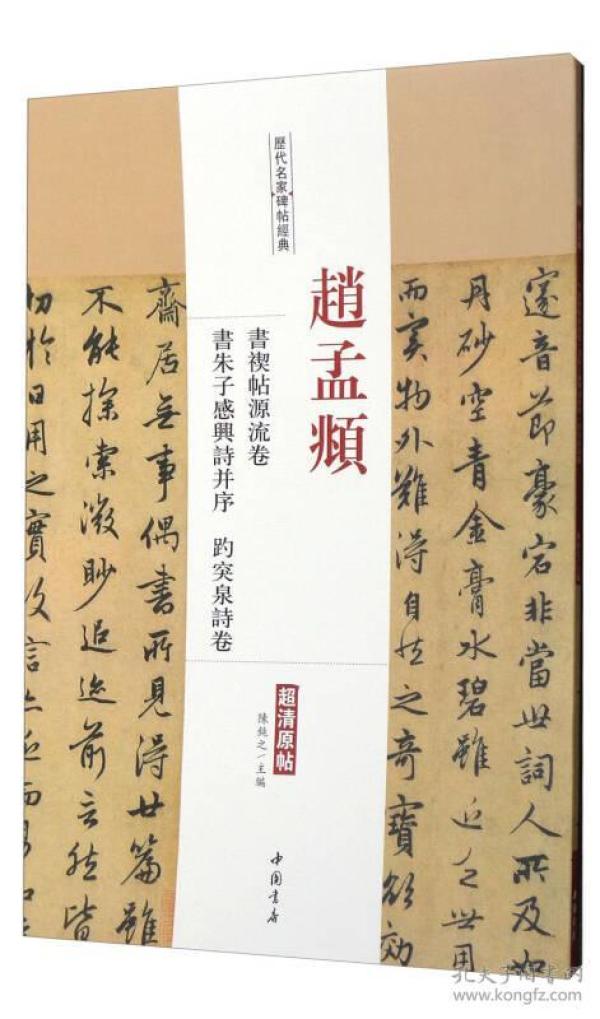 歷代名家碑帖經典
趙孟頫
書禊帖源流卷
書朱子感興詩并序 趵突泉詩卷
超清原帖
陳鈍之/主編
中国書店
邃音節豪宕非當世詞人所及如
丹砂空青金膏水碧雖近乏世用
而實物外難得自然之奇寶欲効
齋居無事偶書所見得廿篇雖
不能探索微眇追迹前言然皆
切於日用之實故言亦近而易知
孔夫子旧书网
www.kongfz.com